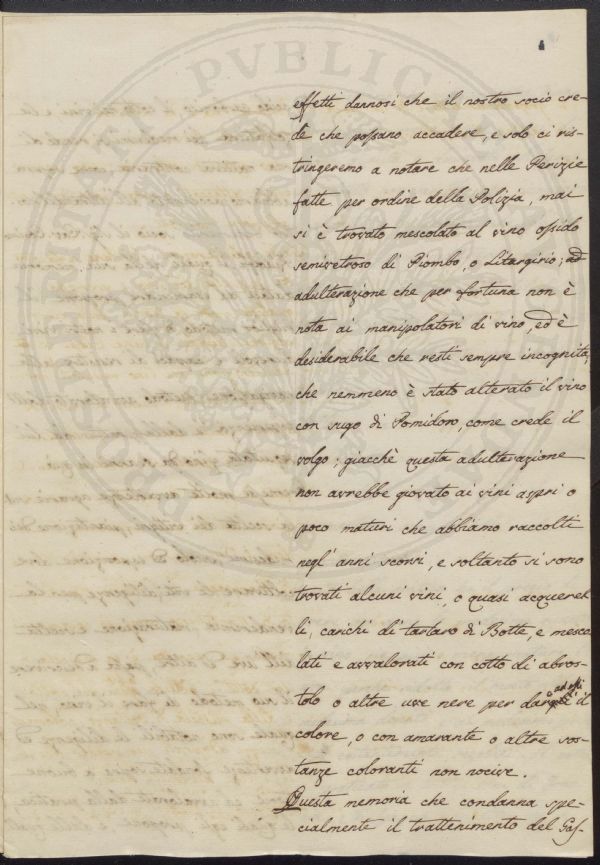 effetti dannosi che il nostro socio cre-
dè che possano accadere, e solo ci ris-
tringeremo a notare che nelle Perizie
fatte per ordine della Polizia, mai
si è trovato mescolato al vino ossido
semivetroso di Piombo, o Litargirio; ad
adulterazione che per fortuna non è
nota ai manipolatori di vino, ed è
desiderabile che resti sempre incognita,
che nemmeno è stato alterato il vino
con sugo di Pomidoro, come crede il
volgo; giacchè questa adulterazione
non avrebbe giovato ai vini aspri o
poco maturi che abbiamo raccolti
negl' anni scorsi, e soltanto si sono
trovati alcuni vini, o quasi acquerel
li, carichi di tartaro di Botte, e mesco
lati e avvalorati con cotto di abros-
tolo o altre uve nere per dar ad essi il
colore, o con amaranto o altre sos-
tanze coloranti non nocive.
Questa memoria che condanna spe-
cialmente il trattenimento del Gas-